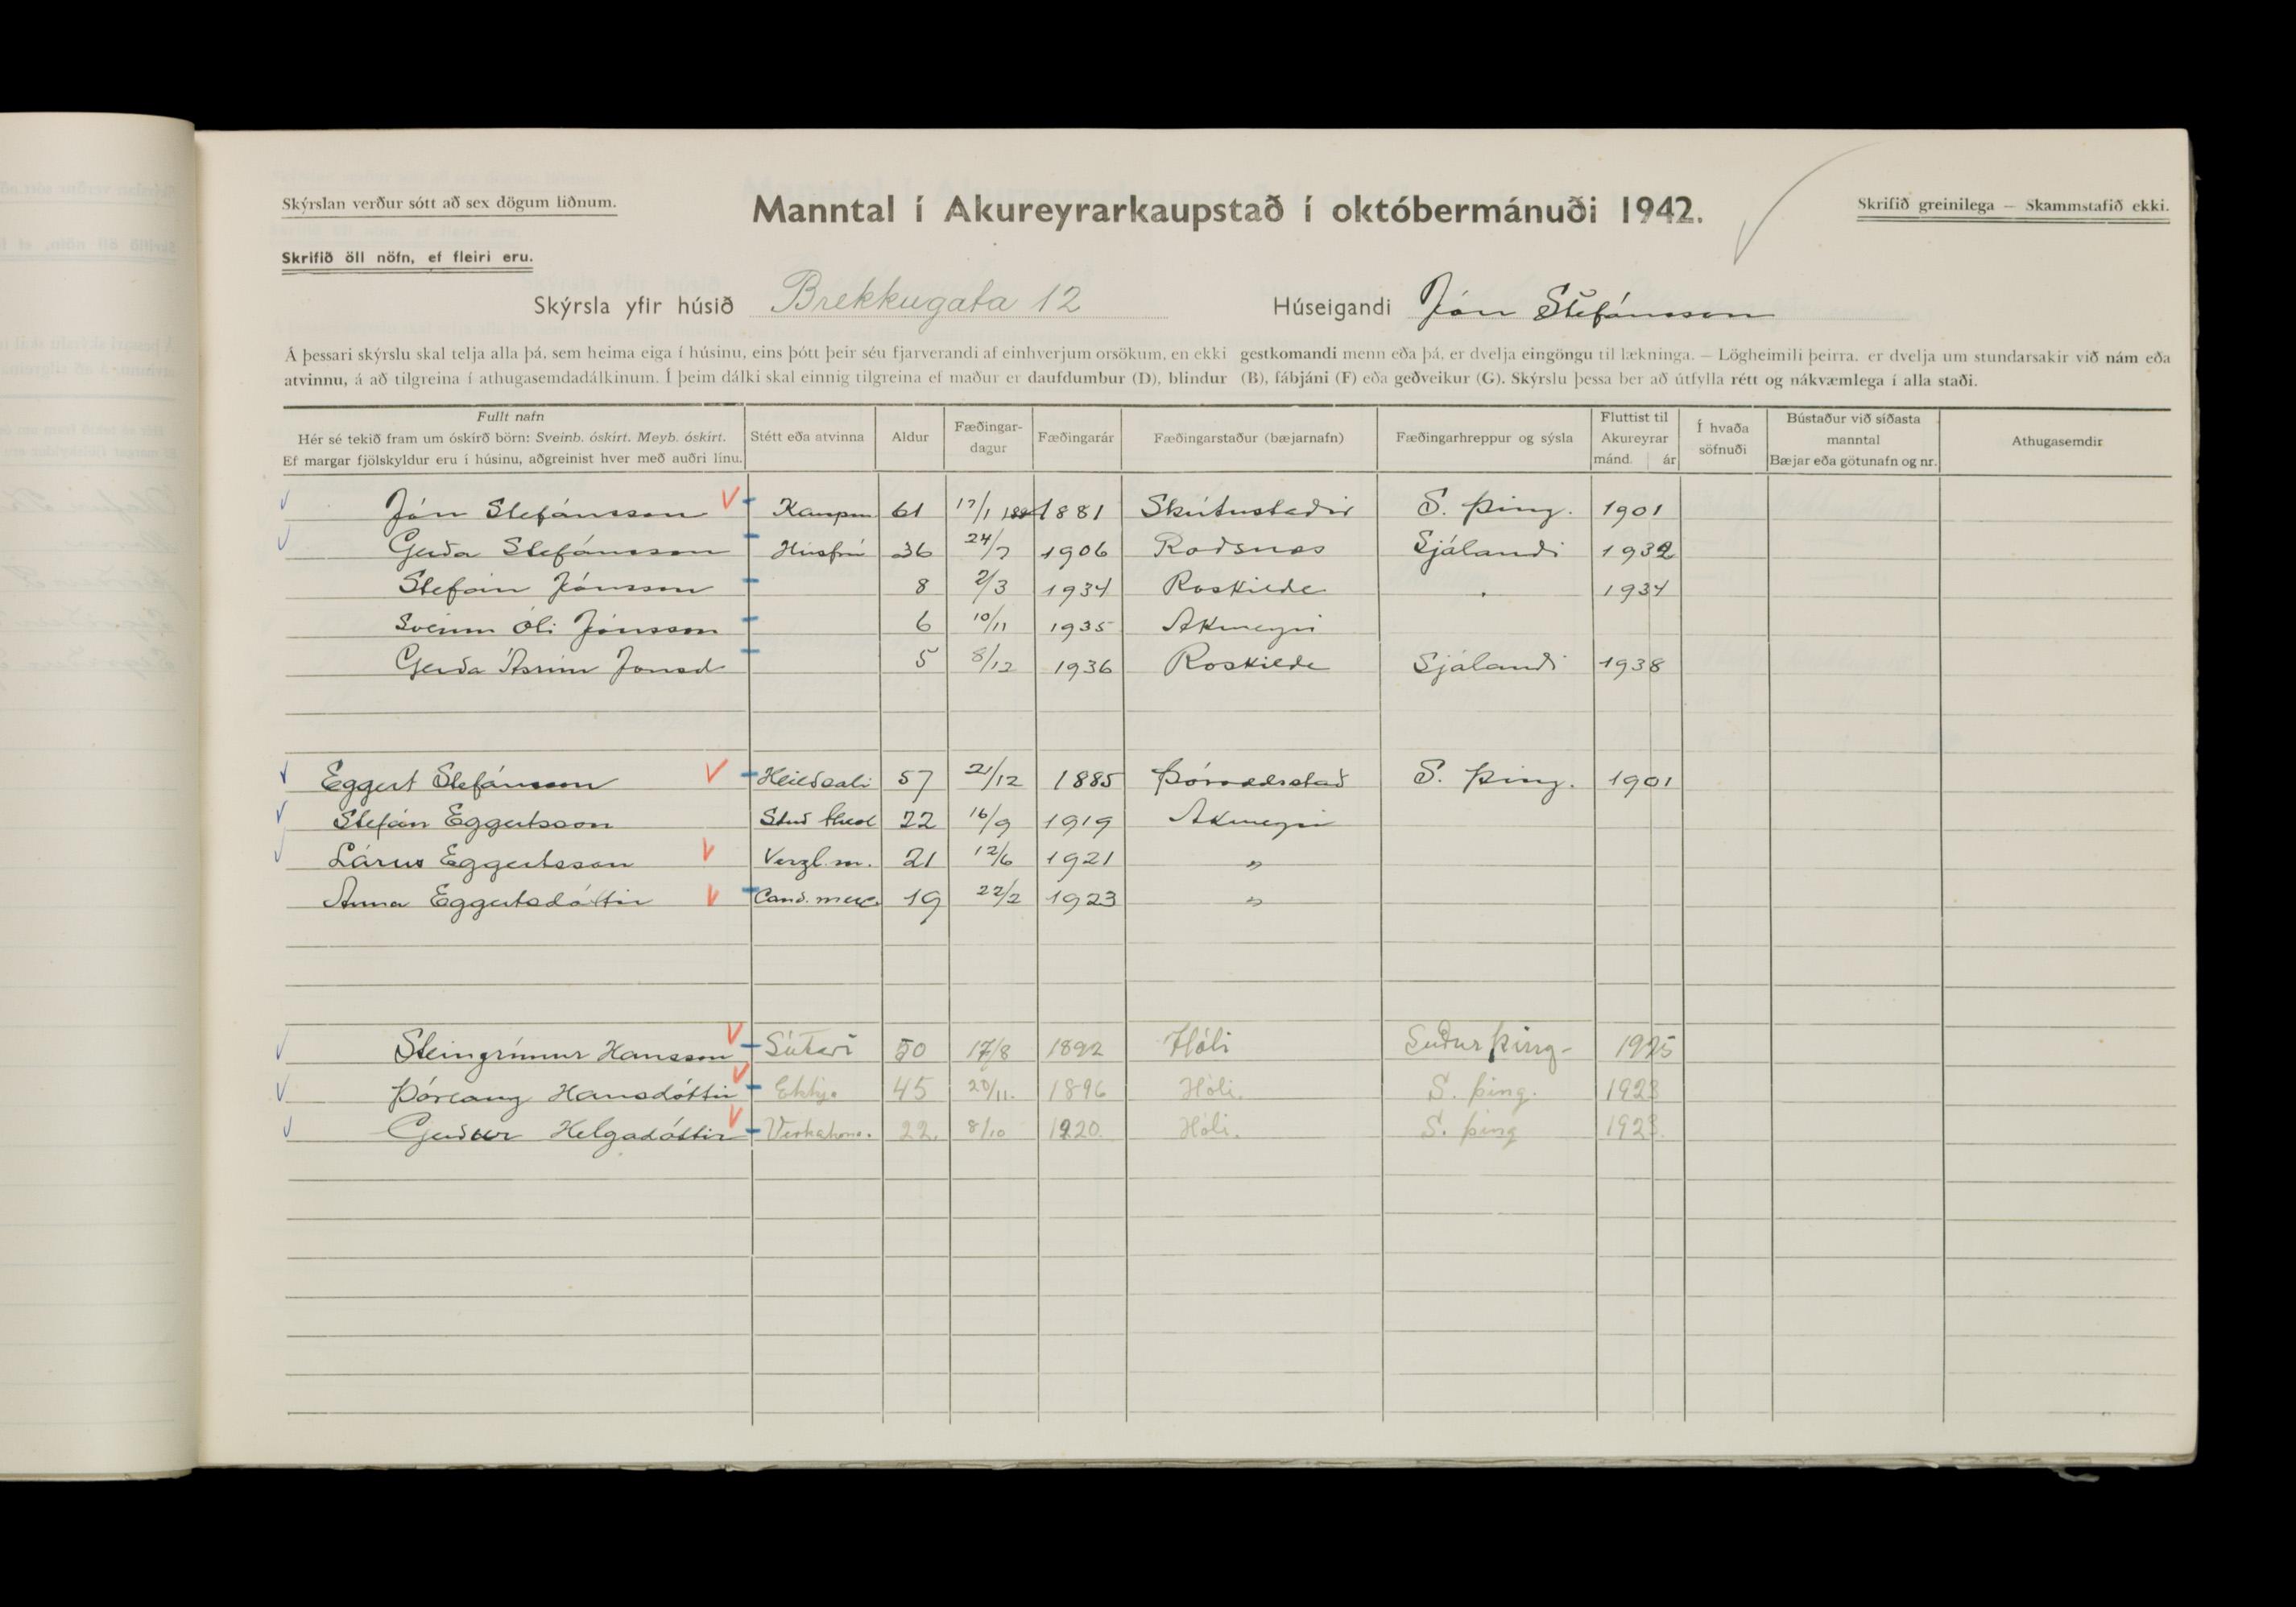 Skýrslan verður sótt að sex dögum liðnum.
Manntal í Akureyrarkaupstað í októbermánuði 1942.
Skrifið greinilega — Skammstafið ekki.
Skrifið öll nöfn, ef fleiri eru.
Skýrsla yfir húsið Brekkugata 12 Húseigandi Jón Stefánsson
Á þessari skýrslu skal telja alla þá, sem heima eiga í húsinu, eins þótt þeir séu fjarverandi af einhverjum orsökum, en ekki gestkomandi menn eða þá, er dvelja eingöngu til lækninga. — Lögheimili þeirra, er dvelja um stundarsakir við nám eða
atvinnu, á að tilgreina í athugasemdadálkinum. Í þeim dálki skal einnig tilgreina ef maður er daufdumbur (D), blindur (B), fábjáni (F) eða geðveikur (G). Skýrslu þessa ber að útfylla rétt og nákvæmlega í alla staði.
Fullt nafn
Hér sé tekið fram um óskírð börn: Sveinb. óskírt. Meyb. óskírt.
Ef margar fjölskyldur eru í húsinu, aðgreinist hver með auðri línu.
Stétt eða atvinna
Aldur
Fæðingar-
dagur
Fæðingarár
Fæðingarstaður (bæjarnafn)
Fæðingarhreppur og sýsla
Fluttist til
Akureyrar
mánd. ár
Í hvaða
söfnuði
Bústaður við síðasta
manntal
Bæjar eða götunafn og nr.
Athugasemdir
Jón Stefánsson Kaupm 61 17/1 1881 Skútustaðir S. Þing. 1901
Gerða Stefánsson Húsfrú 36 24/7 1906 Sjálandi 1932
Stefán Jónsson 8 2/3 1934 Roskilde 1934
Sveinn Óli Jónsson 6 10/11 1935 Akureyri
Gerða Jónsd 5 8/12 1936 Roskilde Sjálandi 1938
Eggert Stefánsson Heildsali 57 21/12 1885 Þóroddsstað S. Þing. 1901
Stefán Eggertsson Stud theol 22 16/9 1919 Akureyri
Lárus Eggertsson Verzl.m. 21 12/6 1921 "
Anna Eggertsdóttir Cand. merc. 19 22/2 1923 "
Steingrímur Hansson Sútari 50 17/8 1892 Hóli Suður Þing- 1925
Þórlaug Hansdóttir Ekkja 45 20/11. 1896 Hóli. S. Þing. 1923
Gerður Helgadóttir Verkakona. 22. 8/10 1920. Hóli. S. Þing 1923.